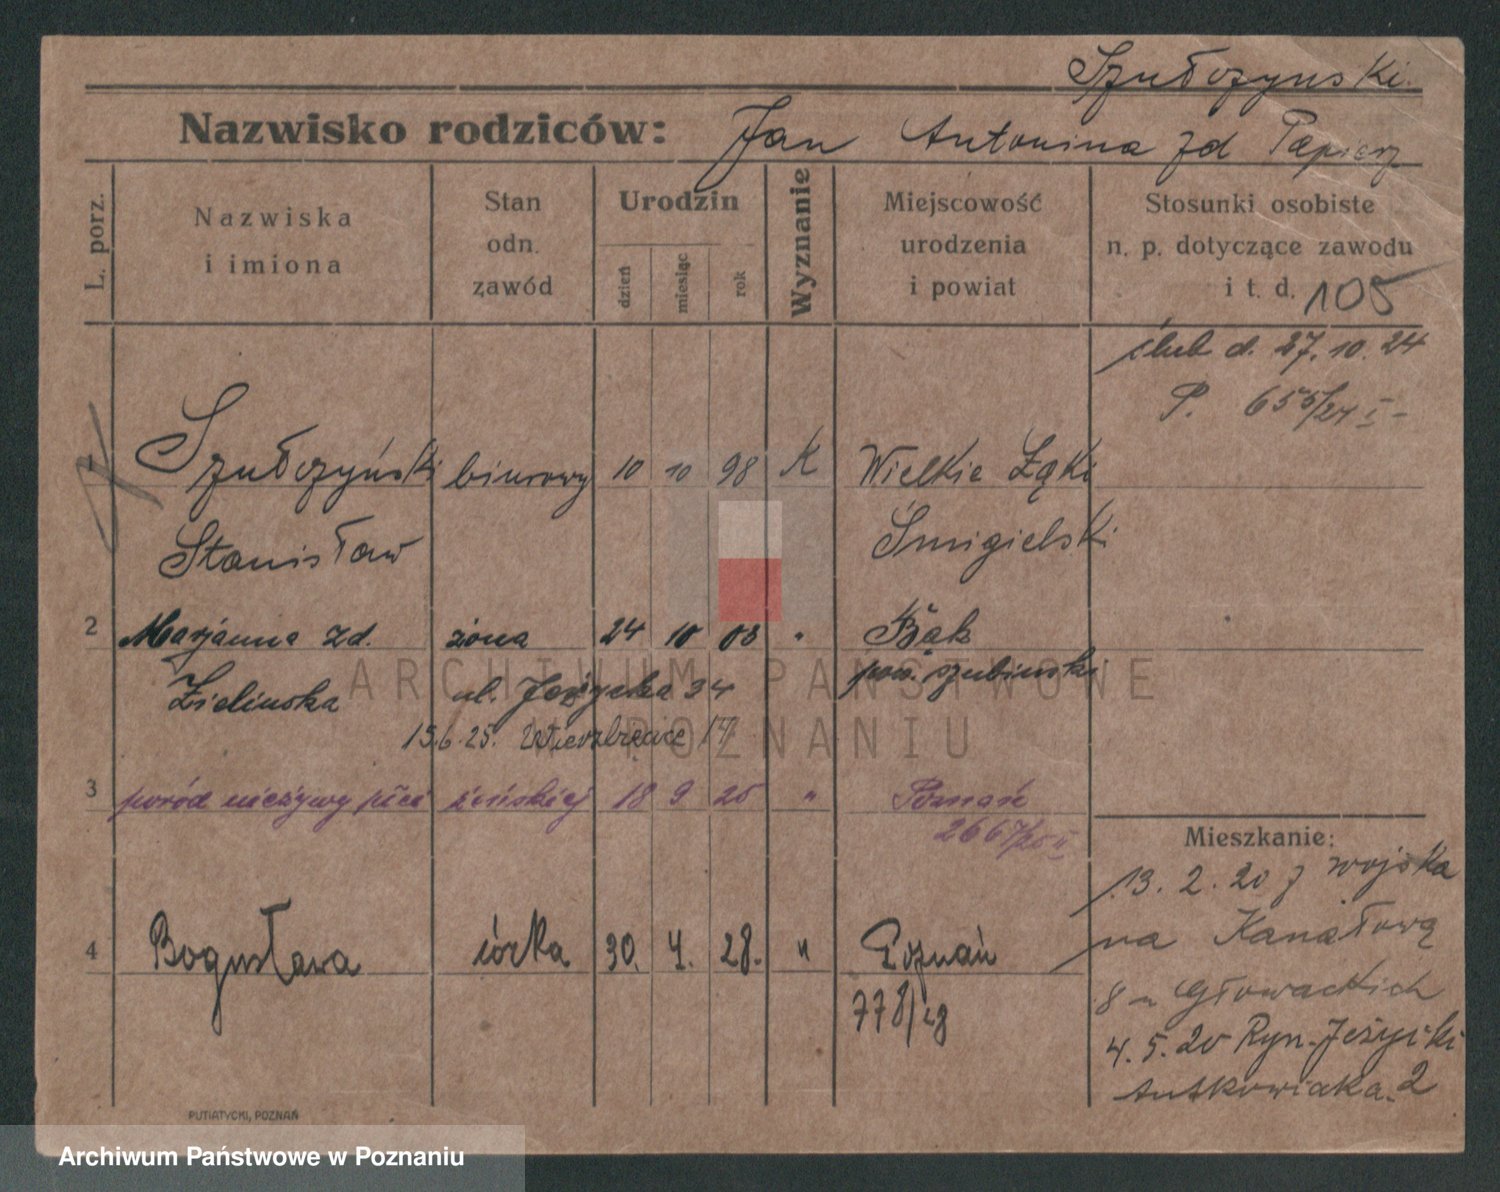 Szułczyński
Nazwisko rodziców: Jan Antonina zd Papierz
L. porz.
Nazwiska
i imiona
Stan
odn.
zawód
Urodzin
dzień
miesiąc
rok
Wyznanie
Miejscowość
urodzenia
i powiat
Stosunki osobiste
n. p. dotyczące zawodu
i t. d. 105
ślub d. 27. 10. 24
P. 655/24 I
Szułczyński biurowy 10 10 98 K Wielkie Łąki
Stanisław Śmigielski
2 Marjanna zd. żona 24 10 03 " Bąk
Zielinska ul. Jeżycka 34 pow. szubinski
15.6.25. Wierzbięcice
3 poród nieżywy płci żeńskiej 18 9 25 " Poznań
2667/25 II
4 Bogusława córka 30. 4. 28. " Poznań
778/28
Mieszkanie:
13. 2. 20 z wojska
na Kanałową
8 Głowackich
4. 5. 20 Ryn. Jeżycki
Antkowiaka 2
PUTIATYCKI, POZNAŃ
ARCHIWUM PAŃSTWOWE
W POZNANIU
Archiwum Państwowe w Poznaniu